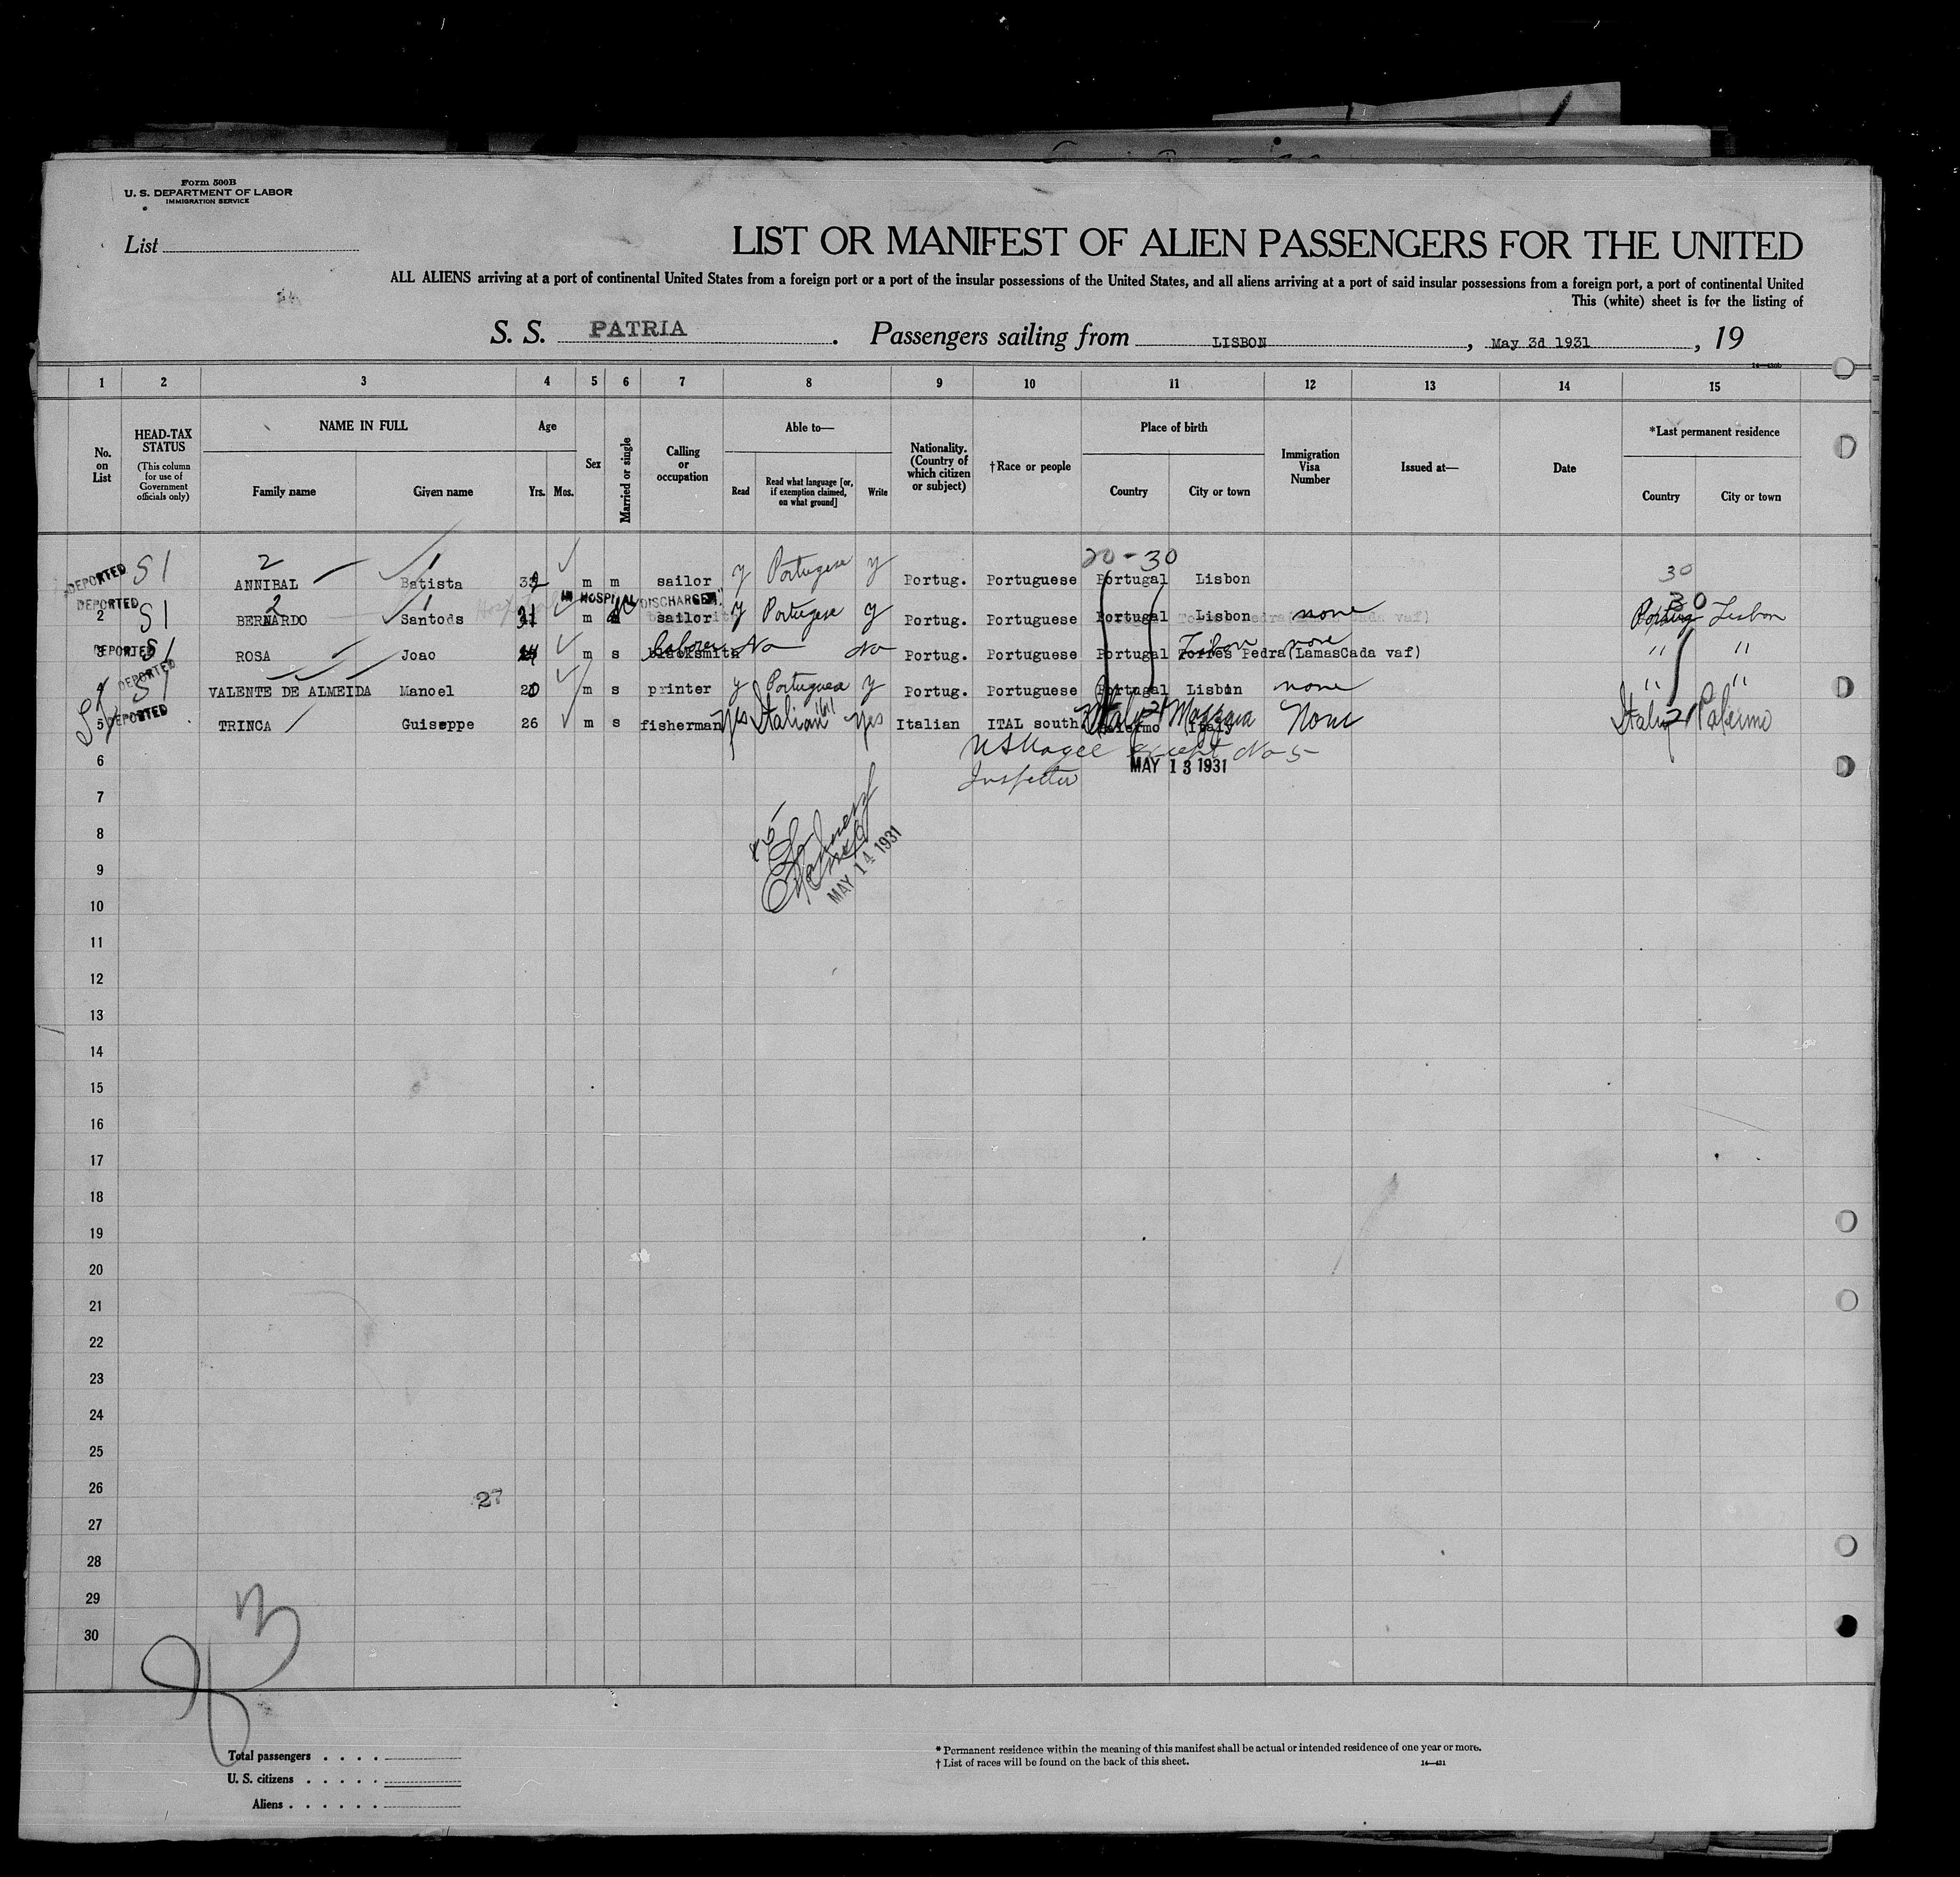 Form 500B
U. S. DEPARTMENT OF LABOR
IMMIGRATION SERVICE
List
LIST OR MANIFEST OF ALIEN PASSENGERS FOR THE UNITED
ALL ALIENS arriving at a port of continental United States from a foreign port or a port of the insular possessions of the United States, and all aliens arriving at a port of said insular possessions from a foreign port, a port of continental United
This (white) sheet is for the listing of
S. S. PATRIA. Passengers sailing from LISBON, May 3d 1931, 19
1 2 3 4 5 6 7 8 9 10 11 12 13 14 15
No. on List
HEAD-TAX STATUS (This column for use of Government officials only)
NAME IN FULL
Family name Given name
Age
Yrs. Mos.
Sex
Married or single
Calling or occupation
Able to—
Read
Read what language [or, if exemption claimed, on what ground]
Write
Nationality. (Country of which citizen or subject)
†Race or people
Place of birth
Country City or town
Immigration Visa Number
Issued at—
Date
*Last permanent residence
Country City or town
2 1 20-30
DEPORTED S1 ANNIBAL Batista m m sailor y Portuguese y Portug. Portuguese Portugal Lisbon 30
IN HOSPITAL DISCHARGED
DEPORTED 2 S1 2 BERNARDO 1 Santods m sailor y Portuguese y Portug. Portuguese Portugal Lisbon none 30 Portug Lisbon
DEPORTED 3 S1 ROSA Joao m s blacksmith laborer No No Portug. Portuguese Portugal Torres Pedra(LamasCada vaf) Lisbon none " "
DEPORTED 4 S1 VALENTE DE ALMEIDA Manoel 20 m s printer y Portuguese y Portug. Portuguese Portugal Lisbon none " "
S1 5 DEPORTED TRINCA Guiseppe 26 m s fisherman yes Italian yes Italian ITAL south Palermo Italy None Italy 21 Palermo
6 except No 5
Inspector MAY 13 1931
7
8
9 MAY 14 1931
10
11
12
13
14
15
16
17
18
19
20
21
22
23
24
25
26 27
27
28
29
30
Total passengers . . . .
U. S. citizens . . . . .
Aliens . . . . . .
* Permanent residence within the meaning of this manifest shall be actual or intended residence of one year or more.
† List of races will be found on the back of this sheet.
14—431